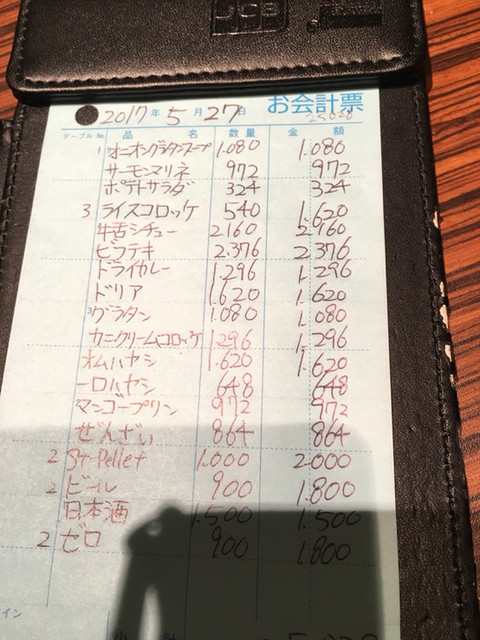 JCB
2017年 5月 27日 お会計票
25028
テーブル No. 品 名 数量 金 額
1 オニオングラタンスープ 1.080 1.080
サーモンマリネ 972 972
ポテトサラダ 324 324
3 ライスコロッケ 540 1.620
牛舌シチュー 2.160 2.160
ビフテキ 2.376 2.376
ドライカレー 1.296 1.296
ドリア 1.620 1.620
グラタン 1.080 1.080
カニクリームコロッケ 1.296 1.296
オムハヤシ 1.620 1.620
一口ハヤシ 648 648
マンゴープリン 972 972
ぜんざい 864 864
2 St-Pellet 1.000 2.000
2 ビール 900 1.800
日本酒 1.500 1.500
2 ゼロ 900 1.800
イン